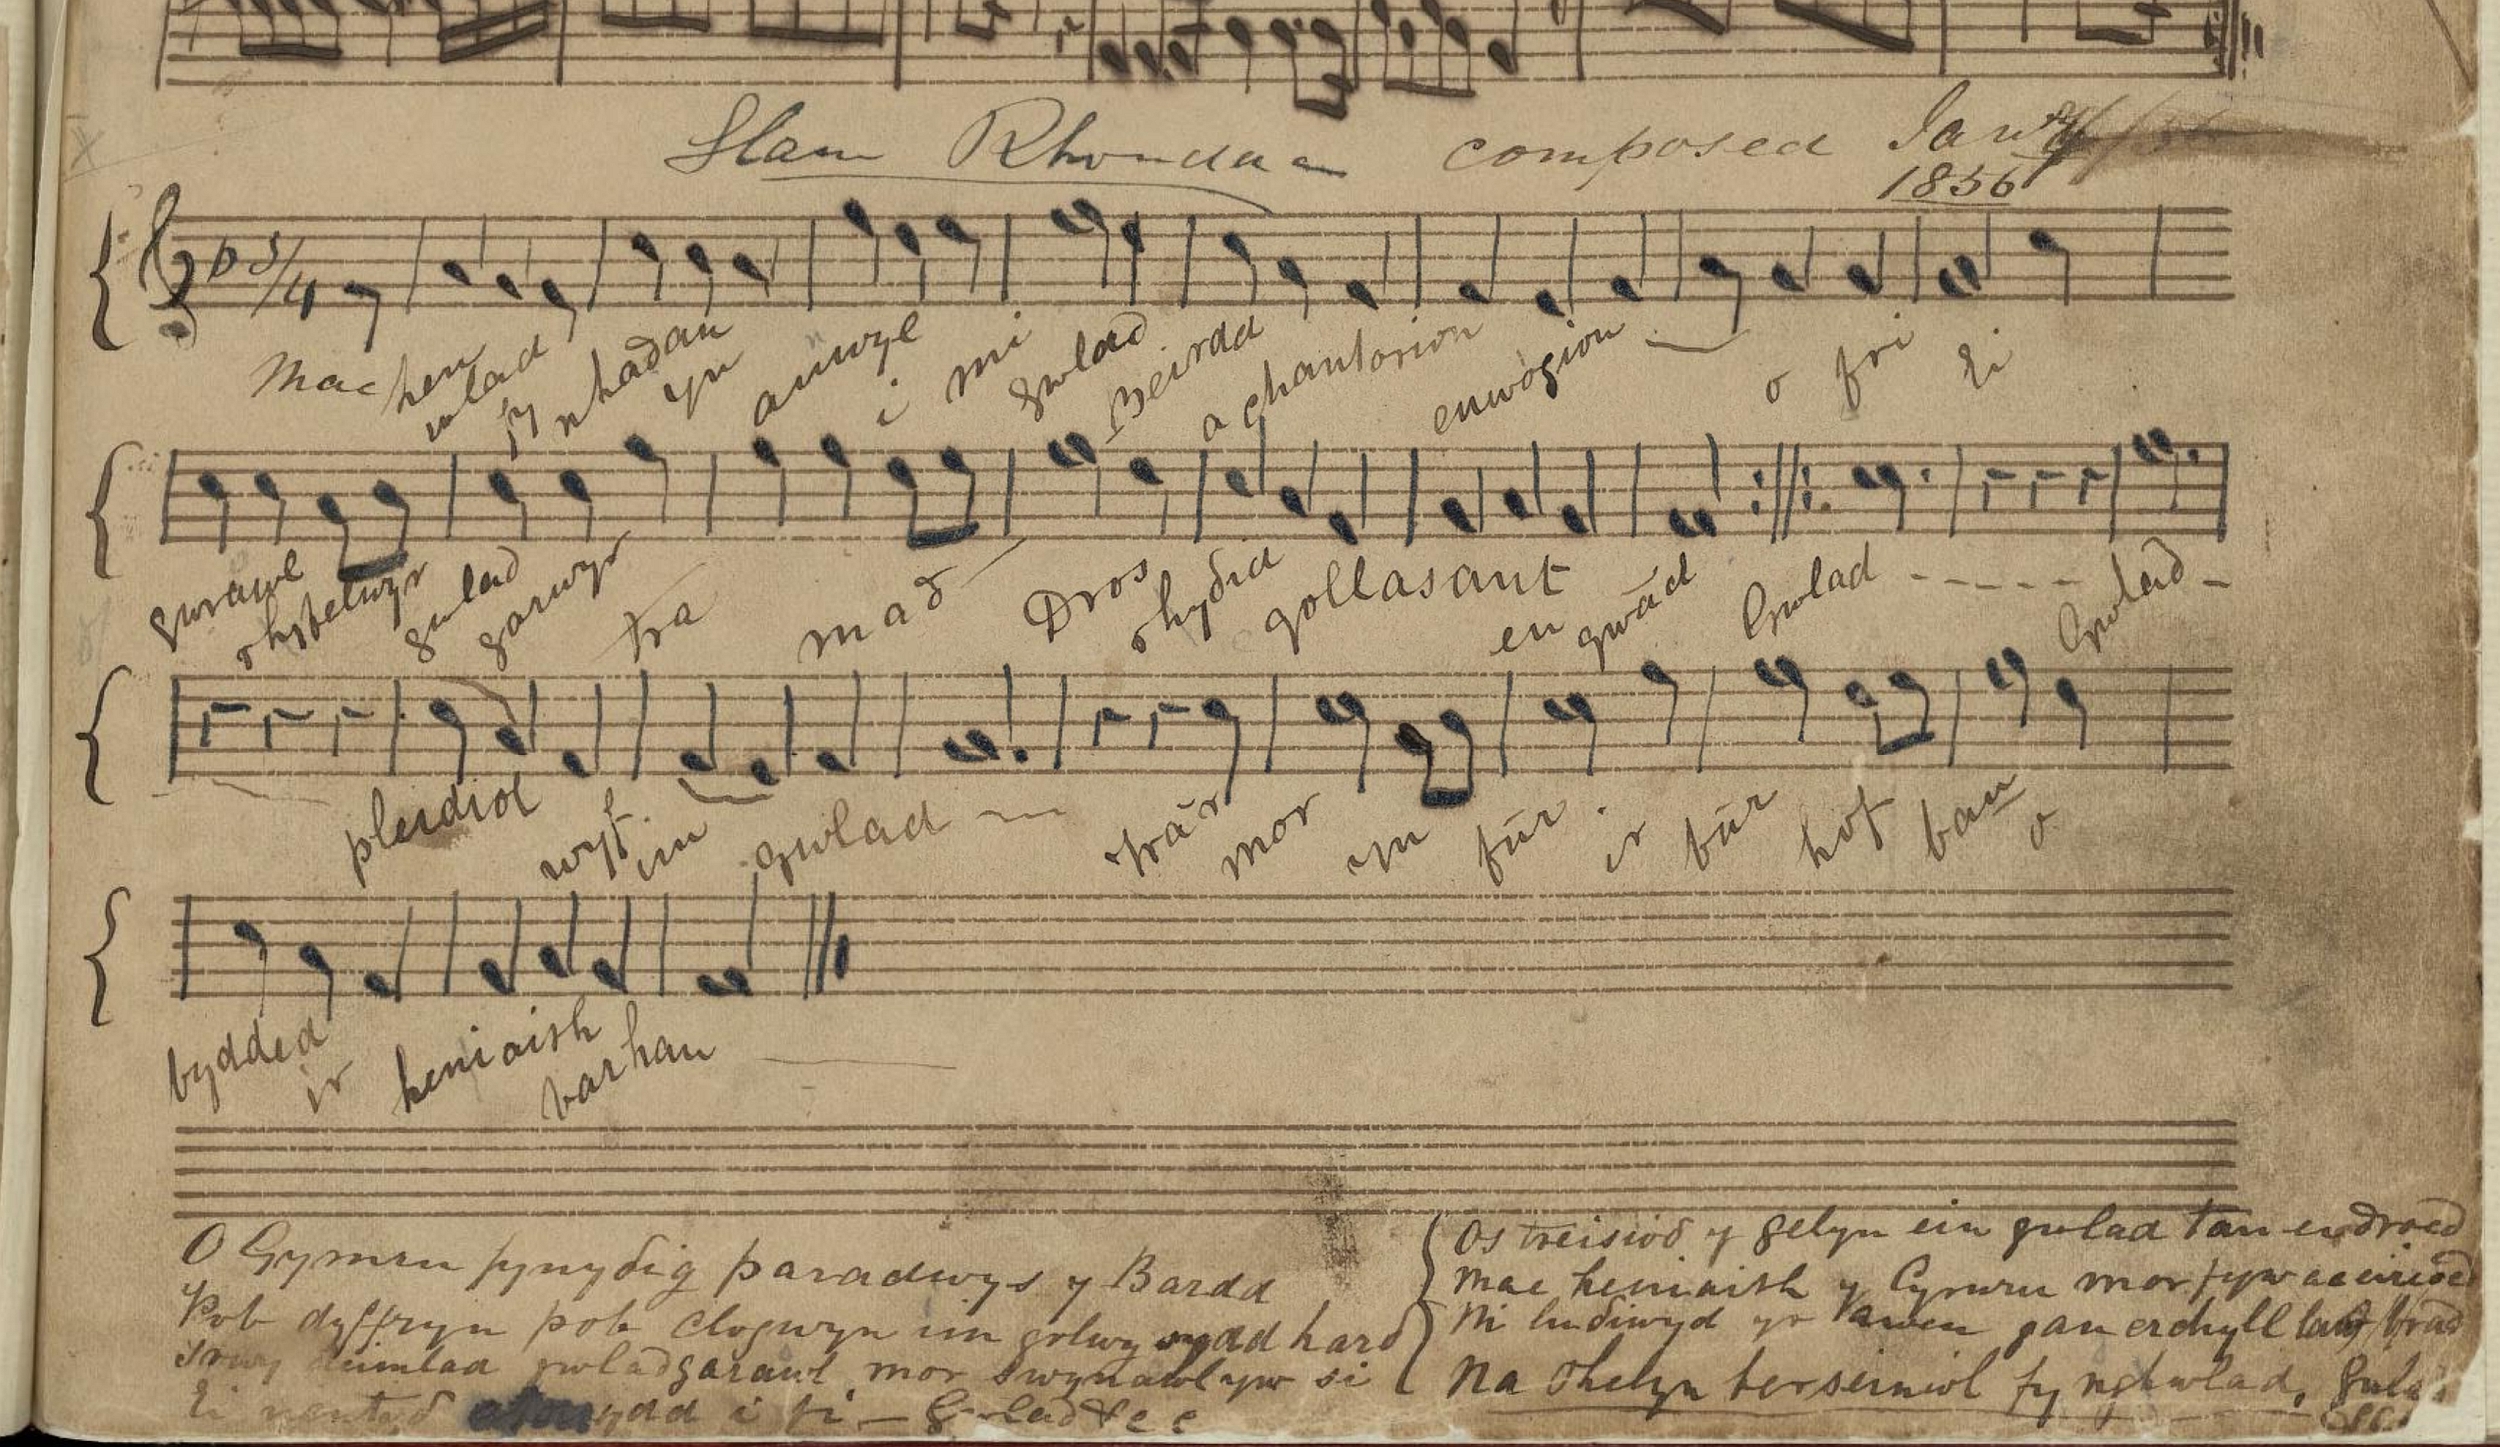 Glan Rhondda composed Jany
1856
Mae hen wlad fy nhadau yn anwyl i mi gwlad Beirdd a chantorion enwogion o fri Ei
gwrawl rhyfelwyr gwlad garwyr tra mad Dros rhydid gollasant eu gwäd Gwlad - - - - - Gwlad -
pleidiol wyf im gwlad trär mor yn für ir bür hof bau o
bydded ir heniaith barhau
O Gymru fynydig paradwys y Bardd
Pob dyffryn pob clogwyn im golwg sydd hard
trwy deimlad gwladgarawl mor swynawl yw si
Ei afonydd i fi — Gwlad &c c
Os treisiod y gelyn ein gwlad tan eu droed
Mae heniaith y Cymru mor fyw ac eirioed
Ni ludiwyd yr Awen gan erchyll brad
Na thelyn berseiniol fy nghwlad, Gwlad
&c